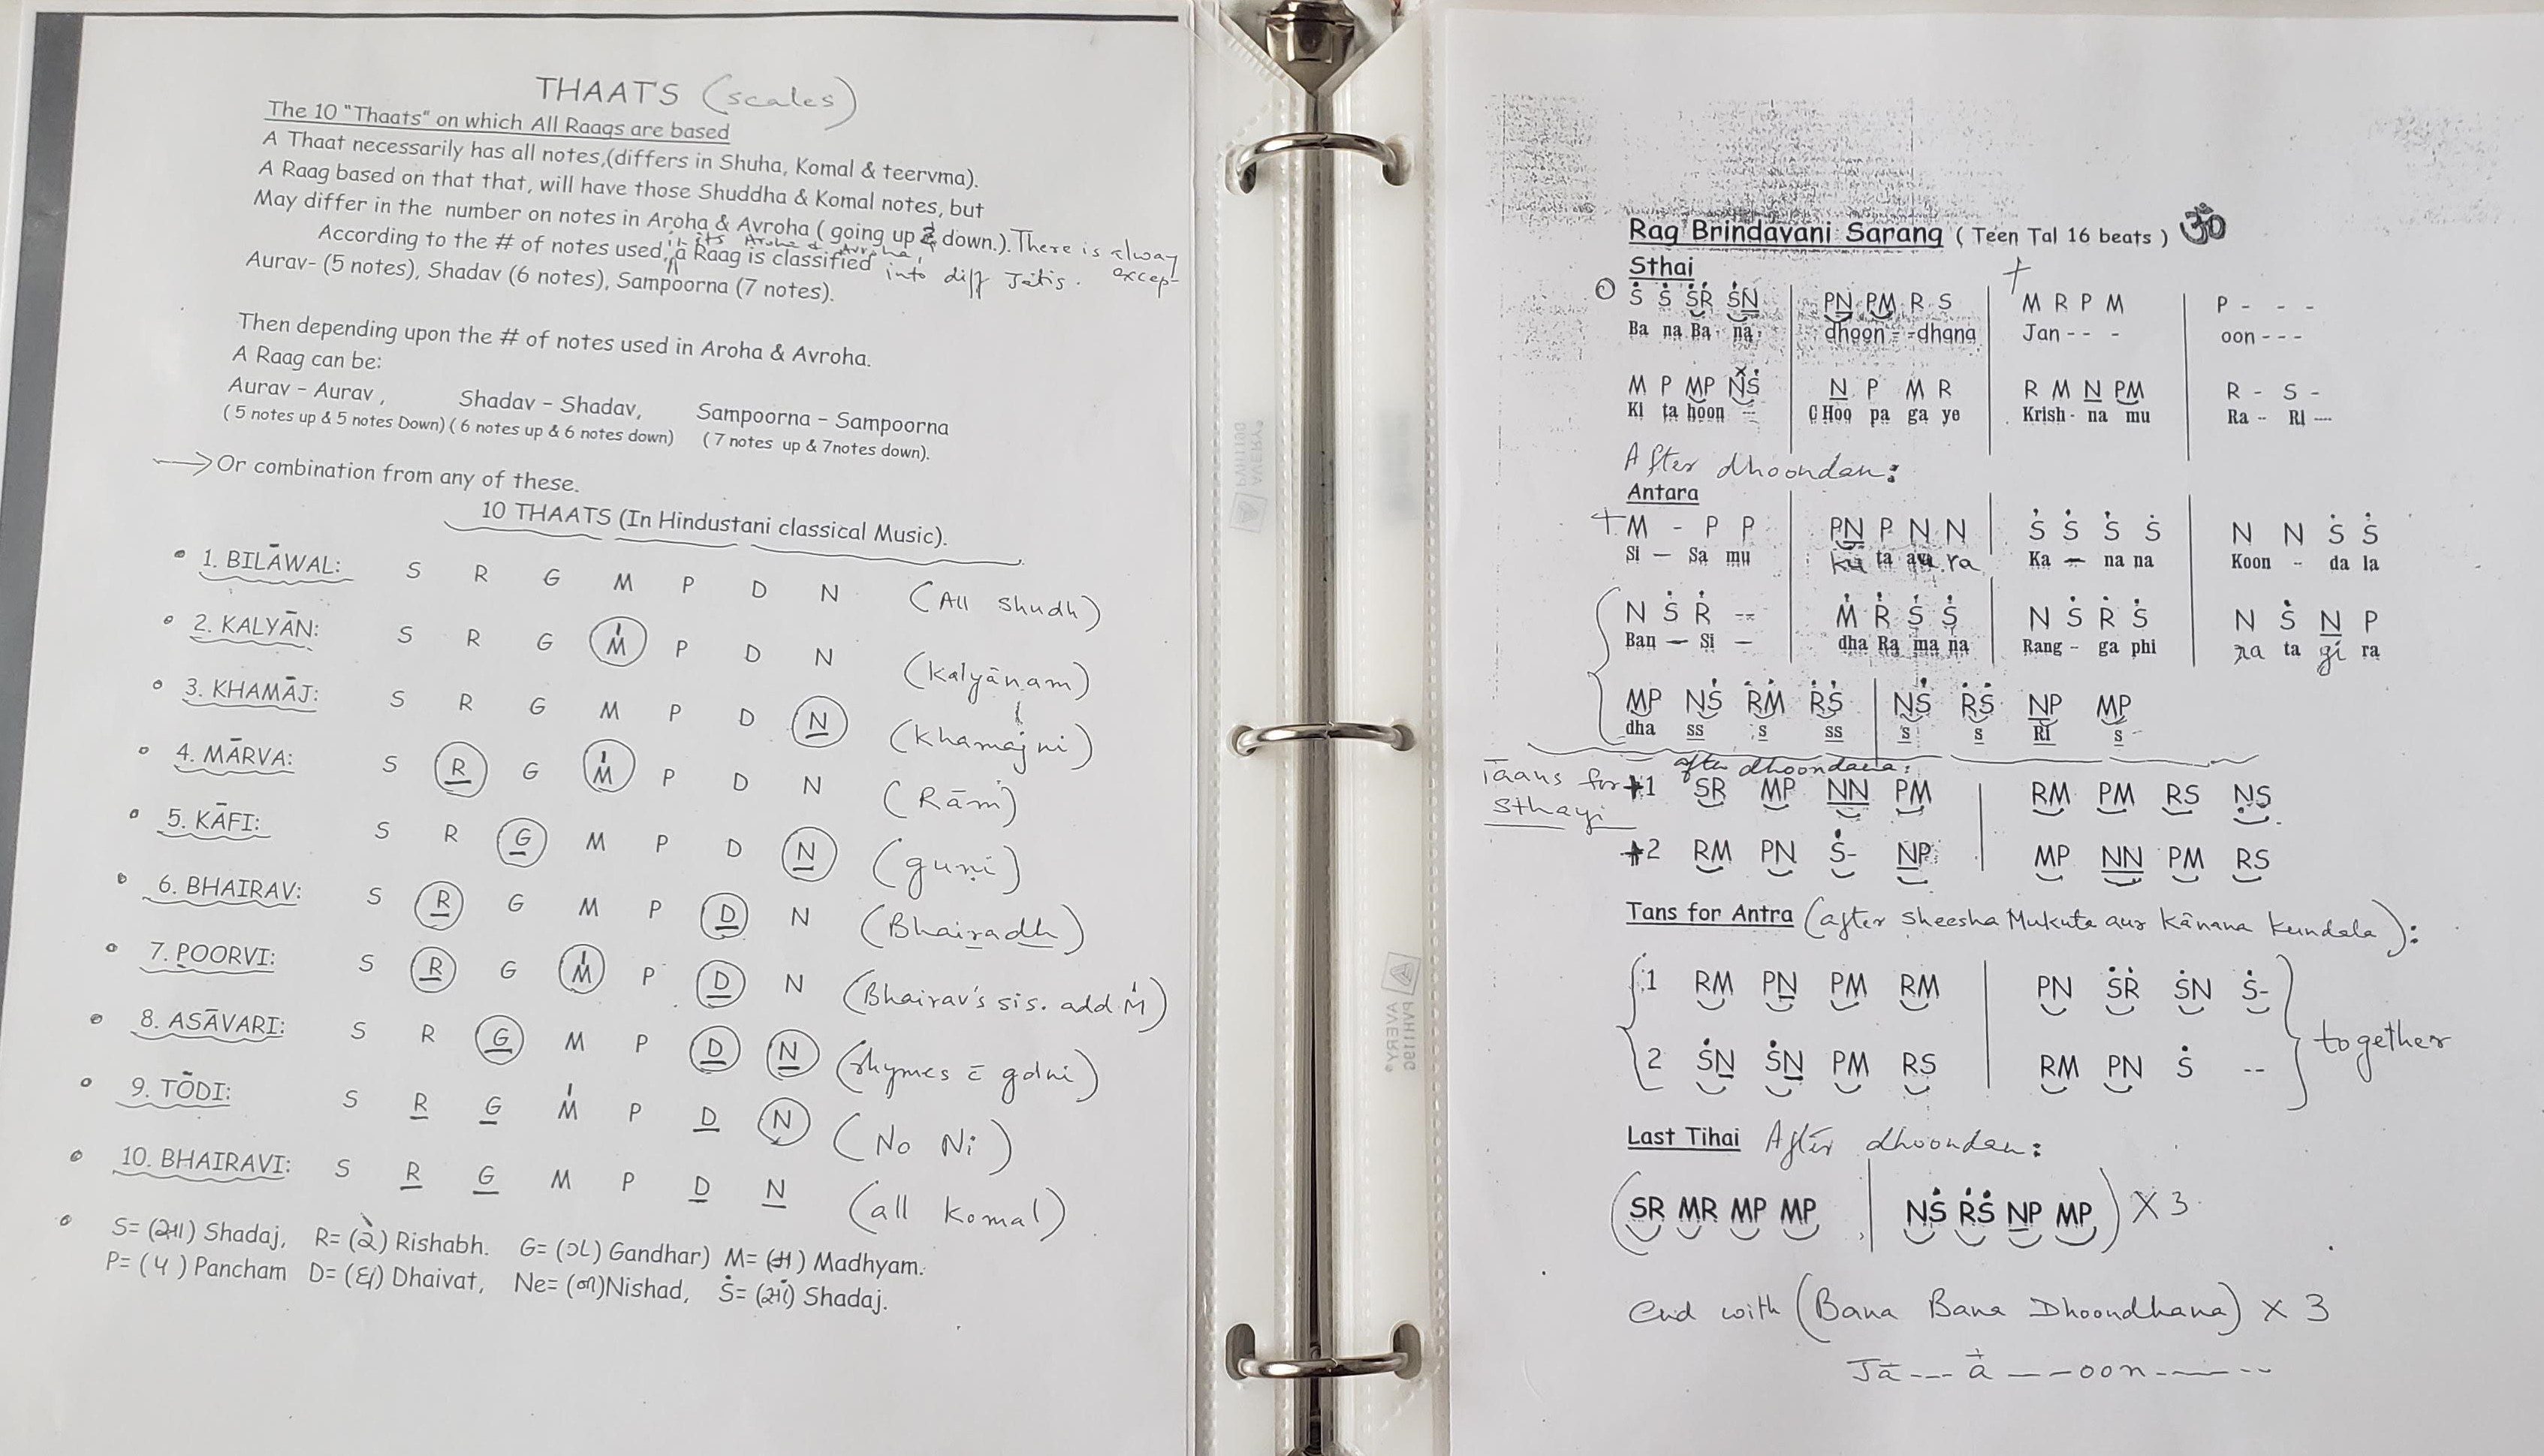 THAATS (scales)
The 10 "Thaats" on which All Raags are based
A Thaat necessarily has all notes,(differs in Shuha, Komal & teervma).
A Raag based on that that, will have those Shuddha & Komal notes, but
May differ in the number on notes in Aroha & Avroha ( going up & down.). There is alway excep-
According to the # of notes used, in its Aroha & Avroha, a Raag is classified into diff Jatis.
Aurav- (5 notes), Shadav (6 notes), Sampoorna (7 notes).
Then depending upon the # of notes used in Aroha & Avroha.
A Raag can be:
Aurav – Aurav , Shadav – Shadav, Sampoorna – Sampoorna
( 5 notes up & 5 notes Down) ( 6 notes up & 6 notes down) ( 7 notes up & 7notes down).
→ Or combination from any of these.
10 THAATS (In Hindustani classical Music).
• 1. BILĀWAL: S R G M P D N (All shudh)
• 2. KALYĀN: S R G M̍ P D N (Kalyānam̍)
• 3. KHAMĀJ: S R G M P D N̲ (Khamaj ni)
• 4. MĀRVA: S R̲ G M̍ P D N (Rām̍)
• 5. KĀFI: S R G̲ M P D N̲ (guni)
• 6. BHAIRAV: S R̲ G M P D̲ N (Bhairadh)
• 7. POORVI: S R̲ G M̍ P D̲ N (Bhairav's sis. add M̍)
• 8. ASĀVARI: S R G̲ M P D̲ N̲ (rhymes c̄ gdni)
• 9. TŌDI: S R̲ G̲ M̍ P D̲ N (No Ni)
• 10. BHAIRAVI: S R̲ G̲ M P D̲ N̲ (all Komal)
• S= (સા) Shadaj, R= (રે) Rishabh. G= (ગ) Gandhar) M= (મ) Madhyam.
P= (પ) Pancham D= (ધ) Dhaivat, Ne= (ની)Nishad, Ṡ= (સાં) Shadaj.
Rag Brindavani Sarang ( Teen Tal 16 beats ) ॐ
Sthai
O Ṡ Ṡ ṠṘ ṠN̲ | PN̲ PM R S | + M R P M | P - - -
Ba na Ba - na - dhoon - -dhana Jan - - - oon - - -
M P MP NṠ | N̲ P M R | R M N̲ PM | R - S -
Ki ta hoon -- C Hoo pa ga ye Krish - na mu Ra -- RI ---
After dhoondan:
Antara
+ M - P P | PN̲ P N N | Ṡ Ṡ Ṡ Ṡ | N N Ṡ Ṡ
Si – Sa mu ku ta au ra Ka – na na Koon - da la
N Ṡ Ṙ -- | Ṁ Ṙ Ṡ Ṡ | N Ṡ Ṙ Ṡ | N Ṡ N̲ P
Ban – Si – dha Ra ma na Rang - ga phi ra ta gi ra
MP NṠ ṘṀ ṘṠ | NṠ ṘṠ N̲P MP
dha ss s ss s s RI s
Taans for Sthayi after dhoondana:
+1 SR MP N̲N̲ PM | RM PM RS ṆS
+2 RM PN Ṡ- N̲P | MP N̲N̲ PM RS
Tans for Antra (after sheesha Mukuta aur Kānana Kundala):
1 RM PN̲ PM RM | PN ṠṘ ṠN Ṡ-
2 ṠN̲ ṠN̲ PM RS | RM PN Ṡ --
together
Last Tihai After dhoondan:
(SR MR MP MP | NṠ ṘṠ N̲P MP) X 3
end with (Bana Bana Dhoondhana) x 3
Jā --- ā — -- oon - — — --
AVERY®
AVERY®